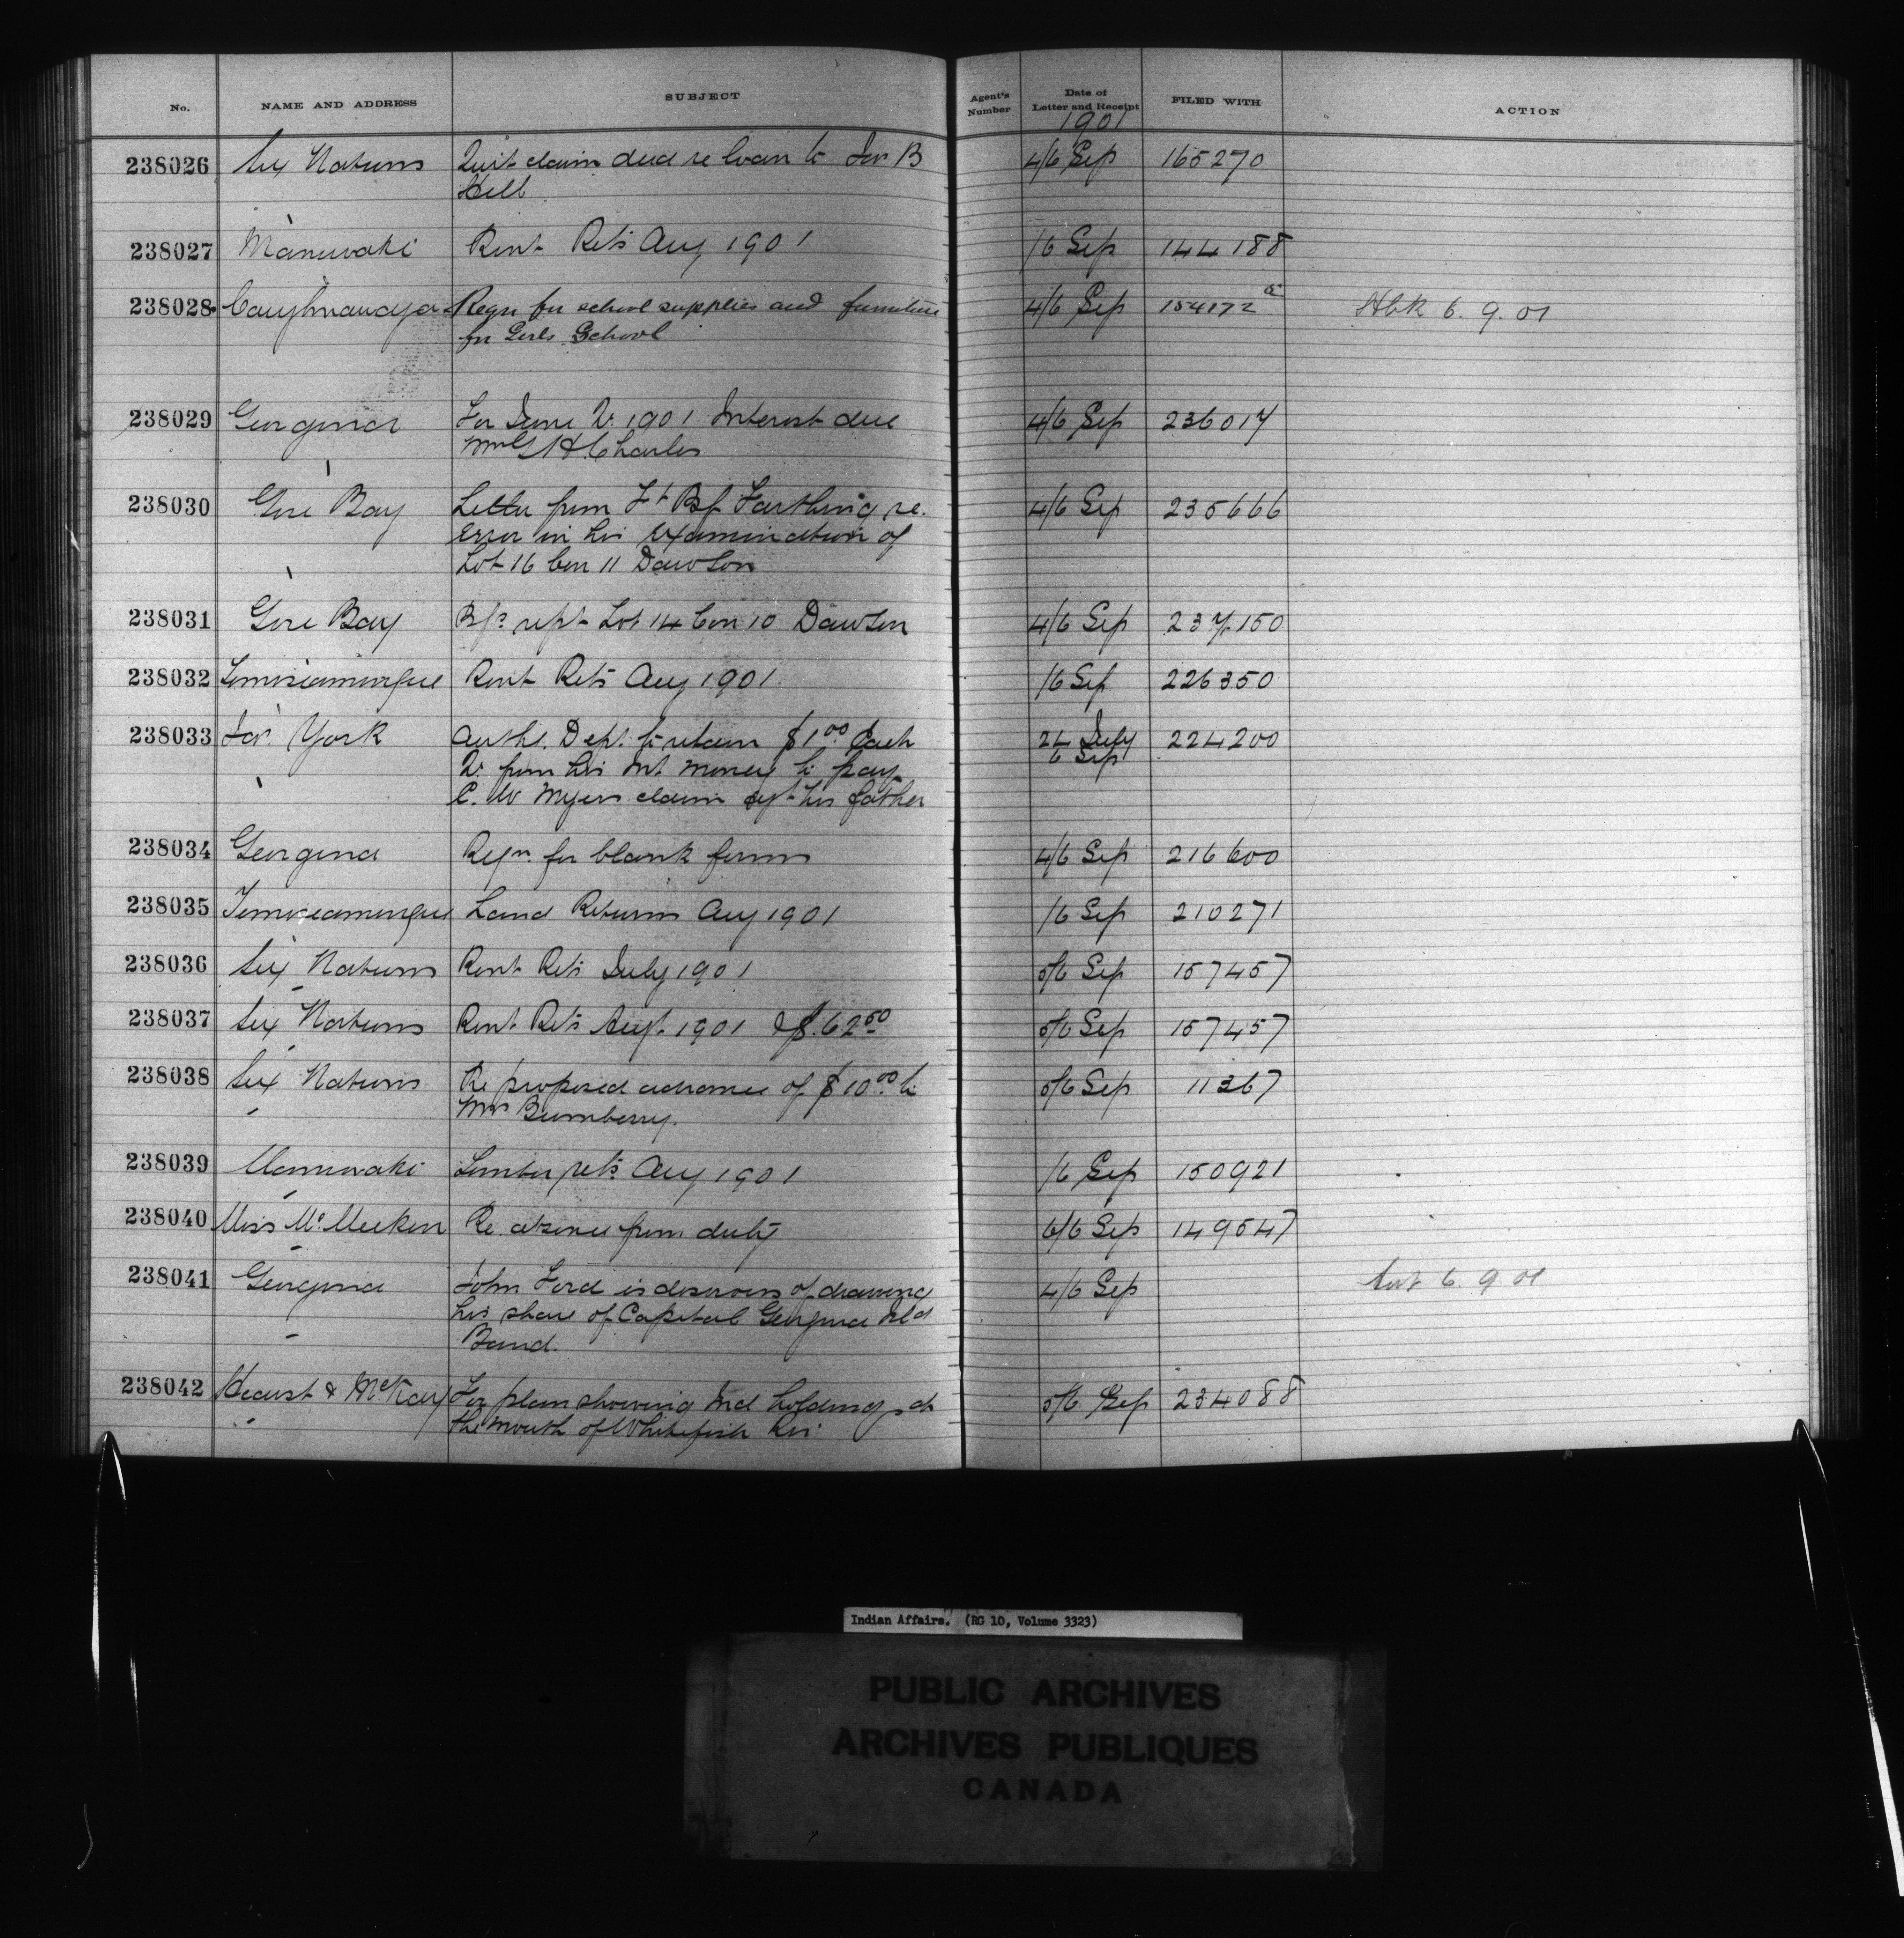 No. NAME AND ADDRESS SUBJECT Agent's Number Date of Letter and Receipt FILED WITH ACTION
1901
238026 Six Nations Quit claim deed re loan to Jas B 4/6 Sep 165270
Hill
238027 Maniwaki Rent Rets Aug 1901 /6 Sep 144188
238028 Caughnawaga Reqn for school supplies and furniture 4/6 Sep 154172 Hbk 6. 9. 01
for Girls School
238029 Georgina For June Qr 1901 Interest due 4/6 Sep 236017
H Charles
238030 Gore Bay Letter from Farthing re. 4/6 Sep 235666
Error in his examination of
Lot 16 Con 11 Dawson
238031 Gore Bay rept Lot 14 Con 10 Dawson 4/6 Sep 237150
238032 Temiscamingue Rent Rets Aug 1901 /6 Sep 226350
238033 Jas. York Auths. Dept. to retain $1.00 Each 24 July 224200
Qr from his Int money to pay 6 Sep
C. W Myers claim agt his father
238034 Georgina Reqn. for blank forms 4/6 Sep 216600
238035 Temiscamingue Land Returns Aug 1901 /6 Sep 210271
238036 Six Nations Rent Rets July 1901 5/6 Sep 157457
238037 Six Nations Rent Rets Augt. 1901 & $.62.50 5/6 Sep 157457
238038 Six Nations Re proposed advance of $10.00 to 5/6 Sep 11367
Mrs Bumberry.
238039 Maniwaki Timber rets Aug 1901 /6 Sep 150921
238040 Miss McMeekin Re absence from duty 6/6 Sep 149547
238041 Georgina John Ford is desirous of drawing 4/6 Sep 6. 9 01
his share of Capital Georgina Isld
Band.
238042 Hearst & McKay For plan showing Ind holdings at 5/6 Sep 234088
the mouth of Whitefish Riv
Indian Affairs. (RG 10, Volume 3323)
PUBLIC ARCHIVES
ARCHIVES PUBLIQUES
CANADA